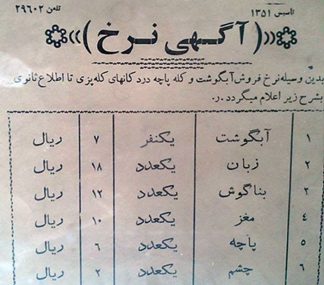 تاسیس ۱۳۵۱ تلفن ۲۹۶۰۲
«(آگهی نرخ)»
بدین وسیله نرخ فروش آبگوشت و کله پاچه در دکانهای کله‌پزی تا اطلاع ثانوی
بشرح زیر اعلام میگردد .ر.
۱ آبگوشت یکنفر ۷ ریال
۲ زبان یکعدد ۱۸ ریال
۳ بناگوش یکعدد ۱۲ ریال
۴ مغز یکعدد ۱۰ ریال
۵ پاچه یکعدد ۶ ریال
۶ چشم یکعدد ۲ ریال